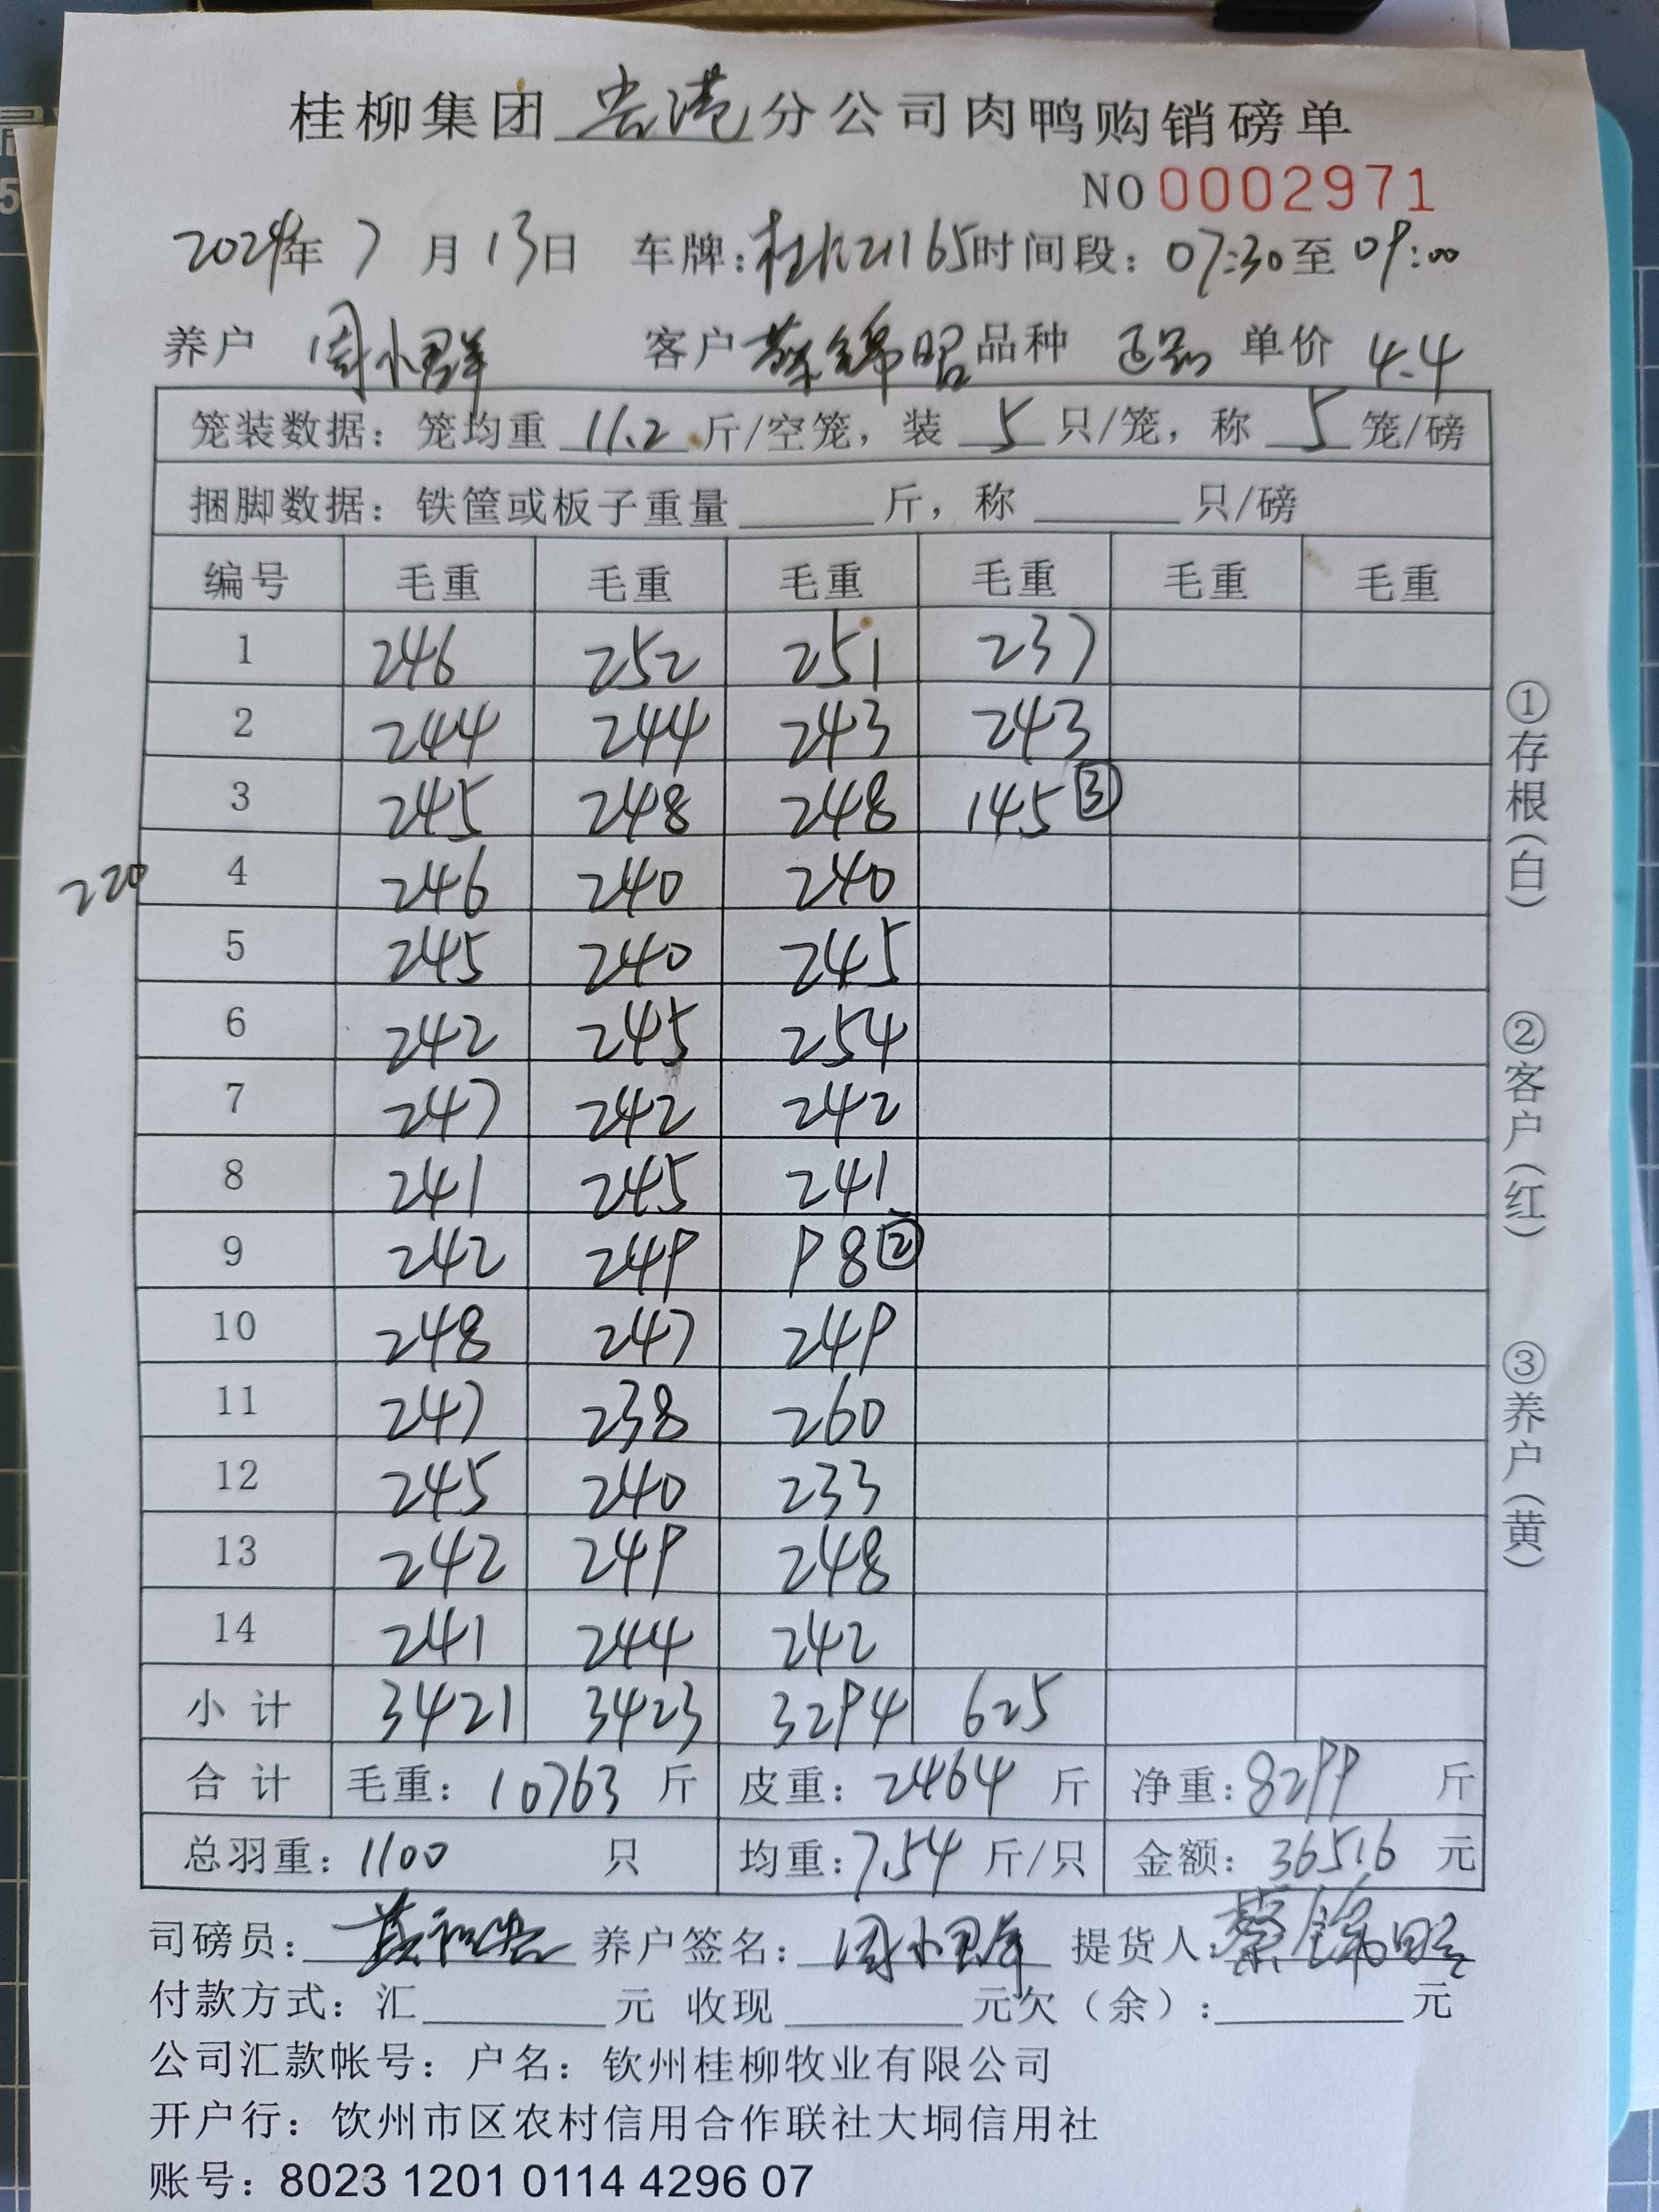 桂柳集团贵港分公司肉鸭购销磅单
NO 0002971
2024年 7 月 13日 车牌: 时间段: 07:30至 09:00
养户 周小群 客户 蔡锦昭 品种 正品 单价 4.4
笼装数据: 笼均重 11.2 斤/空笼, 装 5 只/笼, 称 5 笼/磅
捆脚数据: 铁筐或板子重量______斤, 称______只/磅
编号 毛重 毛重 毛重 毛重 毛重 毛重
1 246 252 251 237
2 244 244 243 243
3 245 248 248 145③
220 4 246 240 240
5 245 240 245
6 242 245 254
7 247 242 242
8 241 245 241
9 242 249 98②
10 248 247 249
11 247 238 260
12 245 240 233
13 242 249 248
14 241 244 242
小计 3421 3423 3294 625
合计 毛重: 10763 斤 皮重: 2464 斤 净重: 8299 斤
总羽重: 1100 只 均重: 7.54 斤/只 金额: 36516 元
①存根(白) ②客户(红) ③养户(黄)
司磅员: 养户签名: 周小群 提货人: 蔡锦昭
付款方式: 汇______元 收现______元欠(余):______元
公司汇款帐号: 户名: 钦州桂柳牧业有限公司
开户行: 饮州市区农村信用合作联社大垌信用社
账号: 8023 1201 0114 4296 07